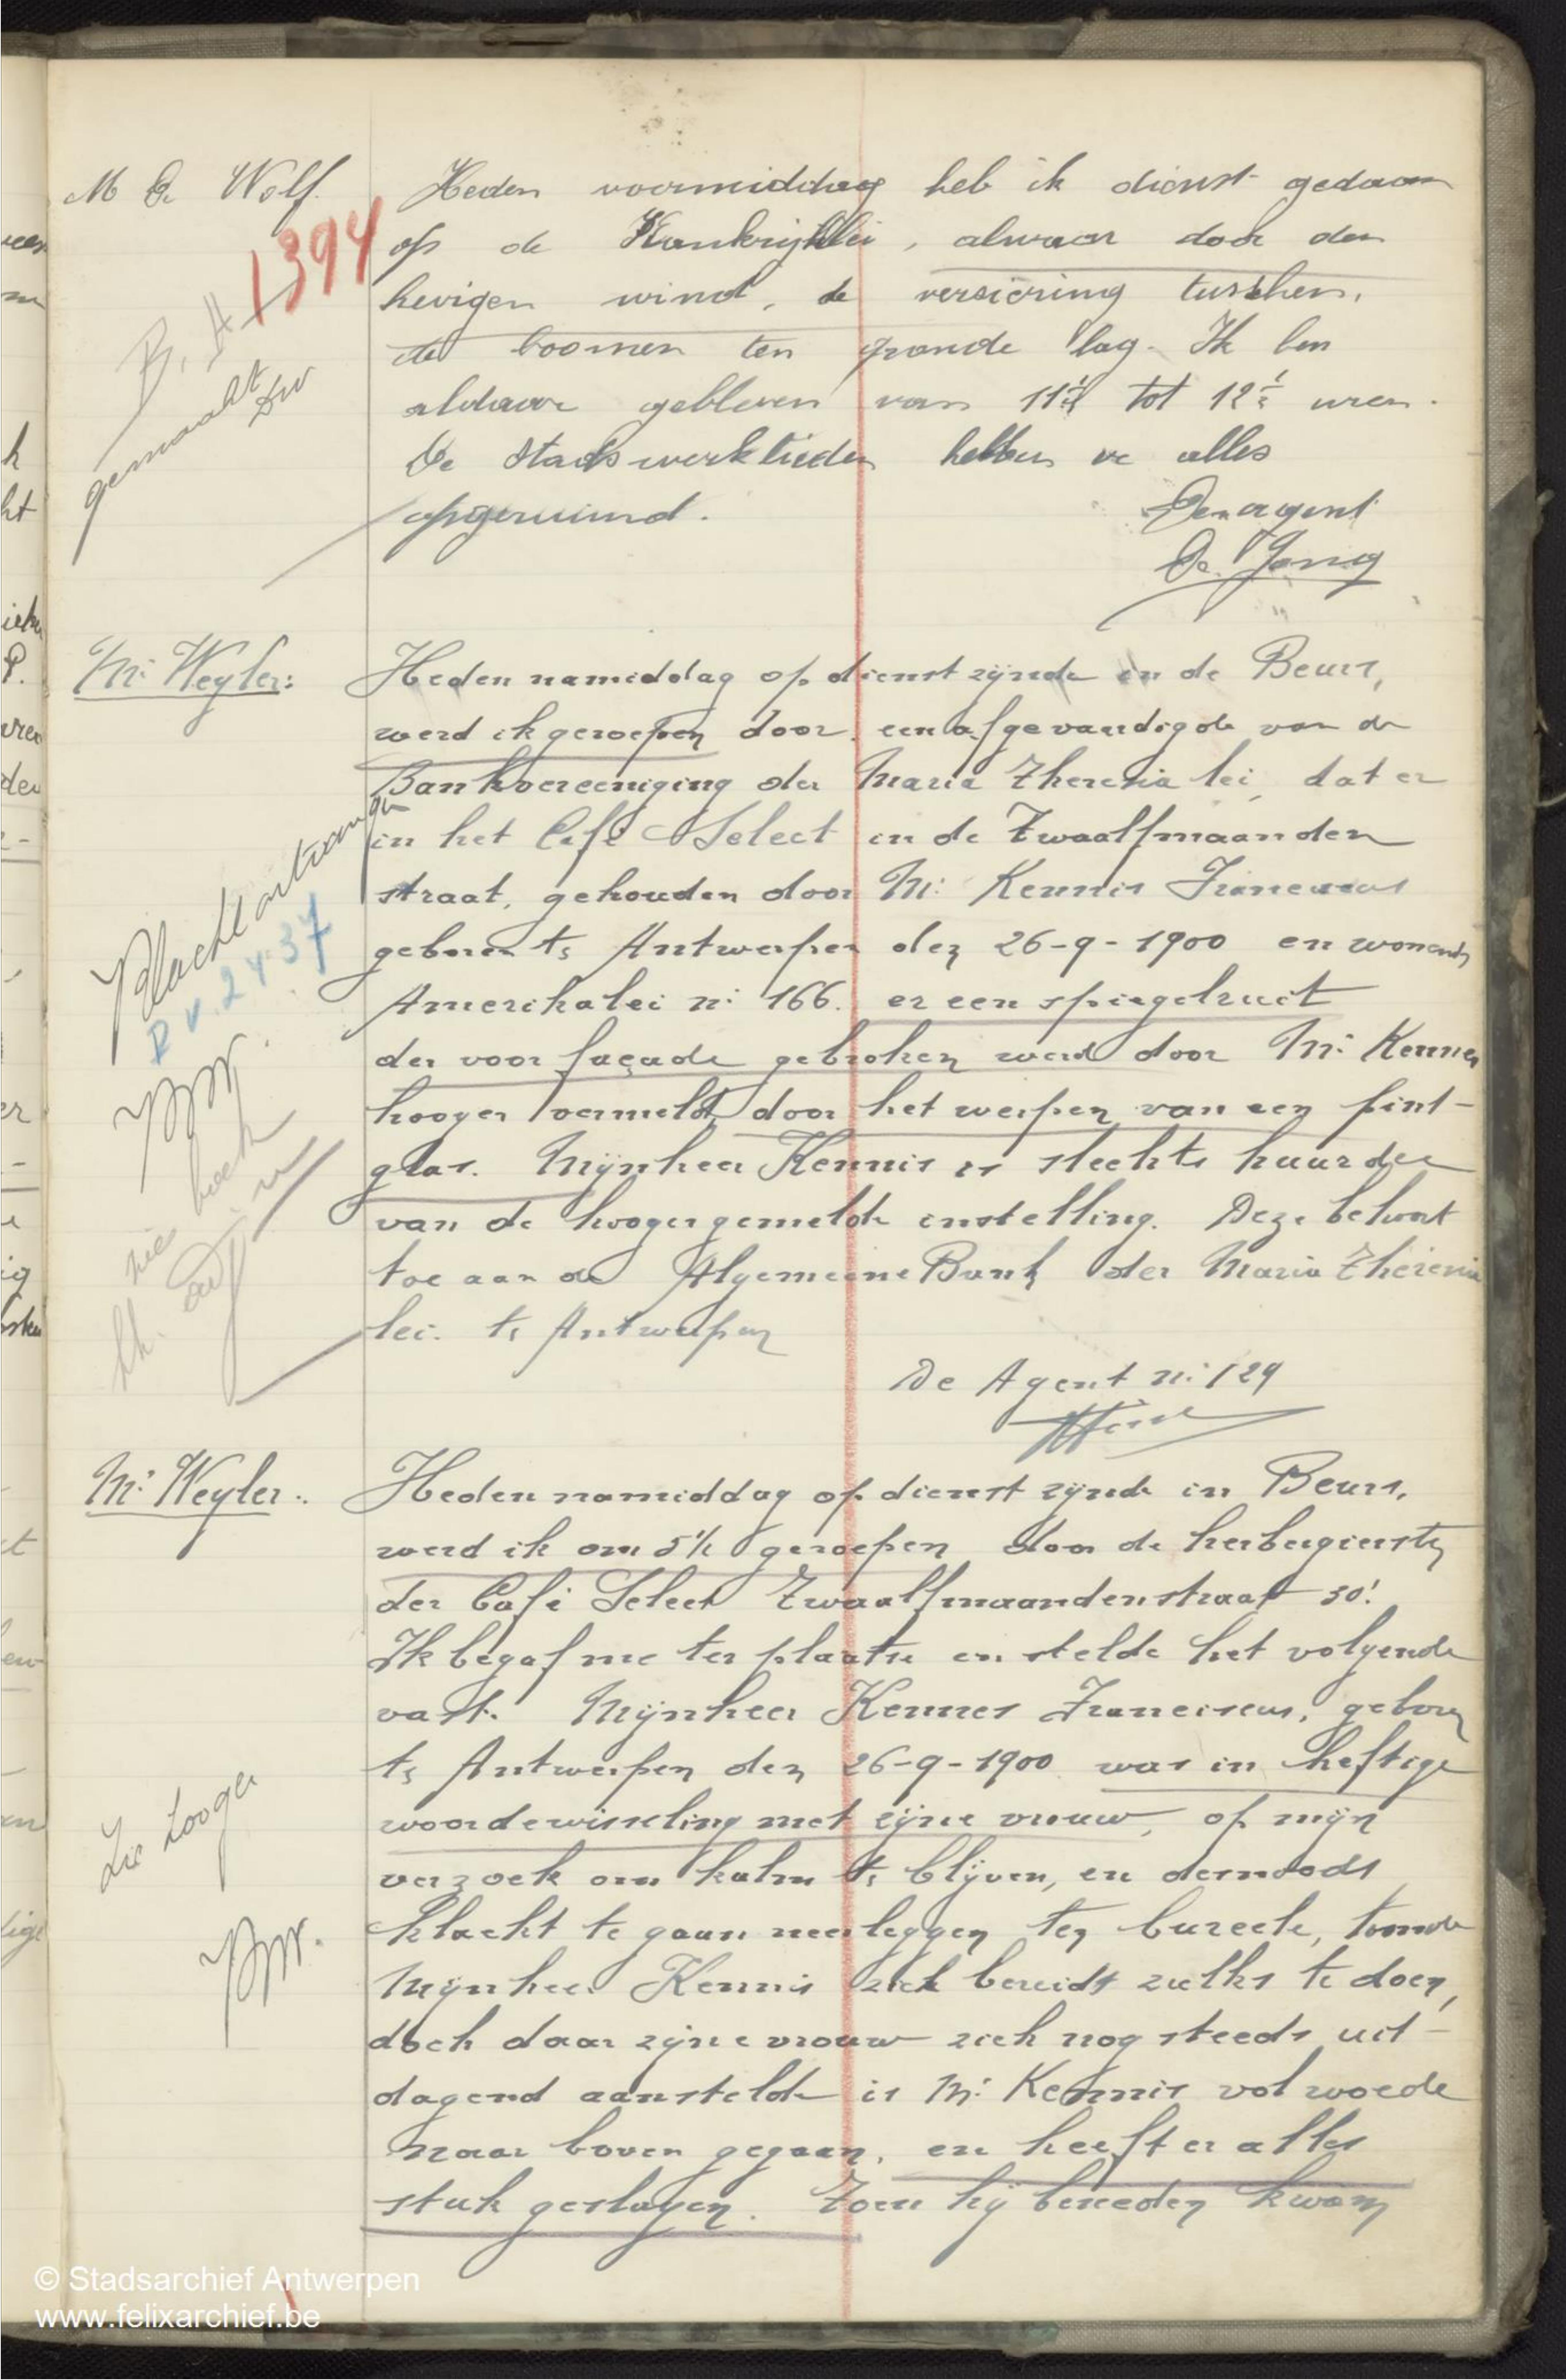 M De Wolf.
1394
B. A
gemaakt
Heden voormiddag heb ik dienst gedaan
op de Frankrijklei, alwaar door den
hevigen wind, de versiering tusschen,
de boomen ten gronde lag. Ik ben
aldaar gebleven van 11½ tot 12½ uren.
De Stadswerklieden hebben er alles
opgeruimd.
Den agent
De Jong
Mr Weyler:
Heden namiddag op dienst zijnde in de Beurs,
werd ik geroepen door een afgevaardigde van de
Bankvereeniging der Maria Theresia lei, dat er
in het Café Select in de Twaalfmaanden
straat, gehouden door Mr Kennis Franciscus
geboren te Antwerpen den 26-9-1900 en wonende
Amerikalei nr 166. er een spiegelruit
der voor façade gebroken werd door Mr Kennes
hooger vermeld, door het werpen van een pint-
glas. Mijnheer Kennis is slechts huurder
van de hoogergemelde instelling. Deze behoort
toe aan de Algemeene Bank der Maria Theresia
lei. te Antwerpen
De Agent nr 129
Klachtontvangen
P.V. 2437
zie boek
Mr Weyler:
Heden namiddag op dienst zijnde in Beurs,
werd ik om 5½ geroepen door de herbergierster
der Café Select Twaalfmaandenstraat 30!
Ik begaf me ter plaatse en stelde het volgende
vast. Mijnheer Kennes Franciscus, geboren
te Antwerpen den 26-9-1900 was in heftige
woordewisseling met zijne vrouw, op mijn
verzoek om kalm te blijven, en dernoods
klacht te gaan neerleggen ten bureele, toonde
Mijnheer Kennis zich bereidt zulks te doen,
doch daar zijne vrouw zich nog steeds uit-
dagend aanstelde is Mr Kennis vol woede
naar boven gegaan, en heeft er alles
stuk geslagen. Toen hij beneden kwam
Zie hooger
© Stadsarchief Antwerpen
www.felixarchief.be